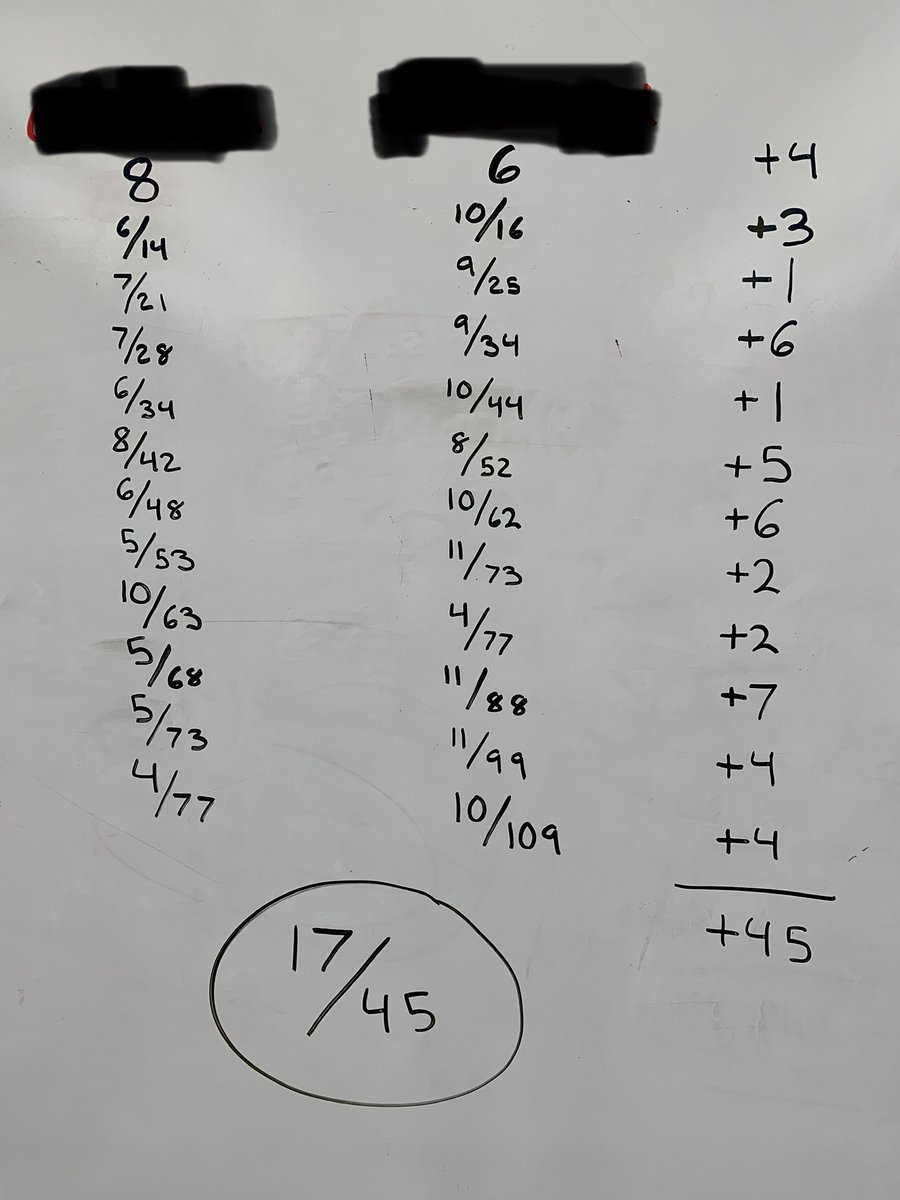 8 6 +4
6/14 10/16 +3
7/21 9/25 +1
7/28 9/34 +6
6/34 10/44 +1
8/42 8/52 +5
6/48 10/62 +6
5/53 11/73 +2
10/63 4/77 +2
5/68 11/88 +7
5/73 11/99 +4
4/77 10/109 +4
+45
17/45